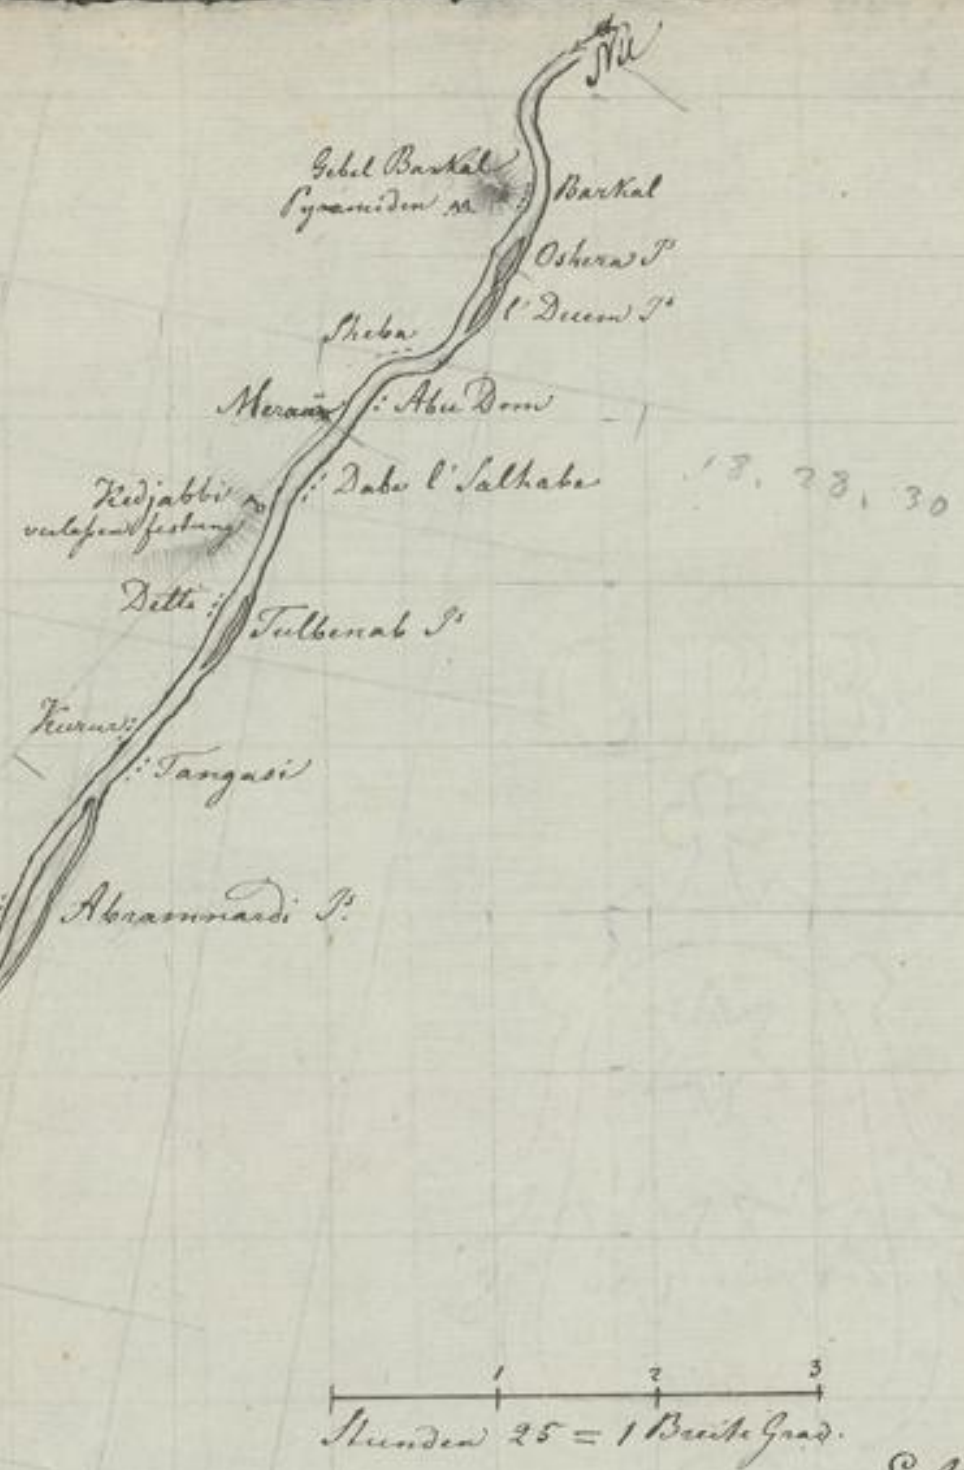 Nil
Gebel Barkal
Pyramiden
Barkal
Oshera Is
l'Duem Is
Sheba
Meraui
Abu Dom
Dabe l'Salhabe
Kedjabbi
verlaßen festung
18. 28. 30
Dette
Tulbenab Is
Kurur
Tangasi
Abramnardi Is.
1 2 3
Stunden 25 = 1 Breite Grad.